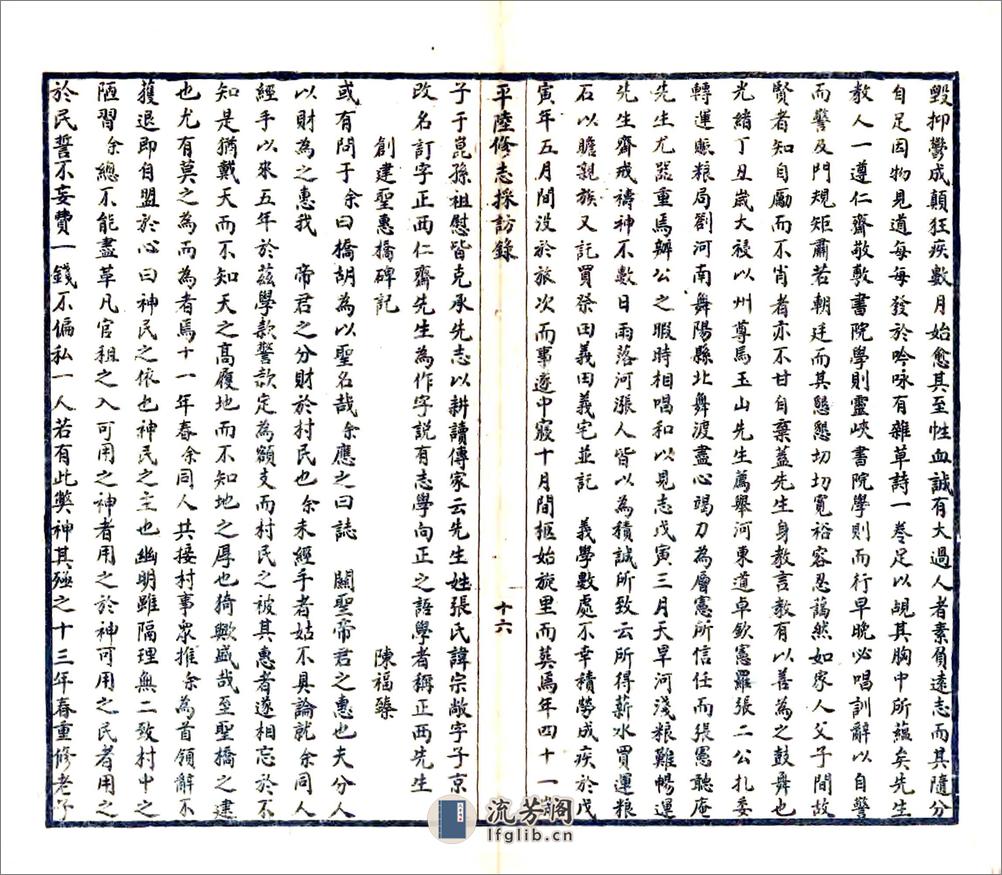 毀抑鬱成顛狂疾數月始愈其至性血誠有大過人者素負遠志而其隨分
自足因物見道每每發於吟咏有雜草詩一卷足以覘其胸中所蘊矣先生
教人一遵仁齋敬敷書院學則靈峽書院學則而行早晚必唱訓辭以自警
而警及門規矩肅若朝廷而其懇懇切切寬裕容忍藹然如家人父子間故
賢者知自勵而不肖者亦不甘自棄蓋先生身教言教有以善為之鼓舞也
光緒丁丑歲大祲以州尊馬玉山先生薦舉河東道卓欽憲羅張二公扎委
轉運賑粮局劄河南舞陽縣北舞渡盡心竭力為層憲所信任而張憲聽庵
先生尤器重焉辦公之暇時相唱和以見志戊寅三月天旱河淺粮難暢運
先生齋戒禱神不數日雨落河漲人皆以為積誠所致云所得薪水買運粮
石以贍親族又記買祭田義田義宅並記 義學數處不幸積勞成疾於戊
寅年五月間没於旅次而事遂中寢十月間柩始旋里而葬焉年四十一
平陸修志採訪錄
十六
子于崑孫祖慰皆克承先志以耕讀傳家云先生姓張氏諱宗敞字子京
改名訂字正西仁齋先生為作字説有志學向正之語學者稱正西先生
創建聖惠橋碑記 陳福臻
或有問于余曰橋胡為以聖名哉余應之曰誌 關聖帝君之惠也夫分人
以財為之惠我 帝君之分財於村民也余未經手者姑不具論就余同人
經手以來五年於茲學款警款定為額支而村民之被其惠者遂相忘於不
知是猶戴天而不知天之高履地而不知地之厚也猗歟盛哉至聖橋之建
也尤有莫之為而為者焉十一年春余同人共接村事眾推余為首領辭不
獲退即自盟於心曰神民之依也神民之主也幽明雖隔理無二致村中之
陋習余總不能盡革凡官租之入可用之神者用之於神可用之民者用之
於民誓不妄費一錢不偏私一人若有此獘神其殛之十三年春重修老爷
流芳阁
lfglib.cn